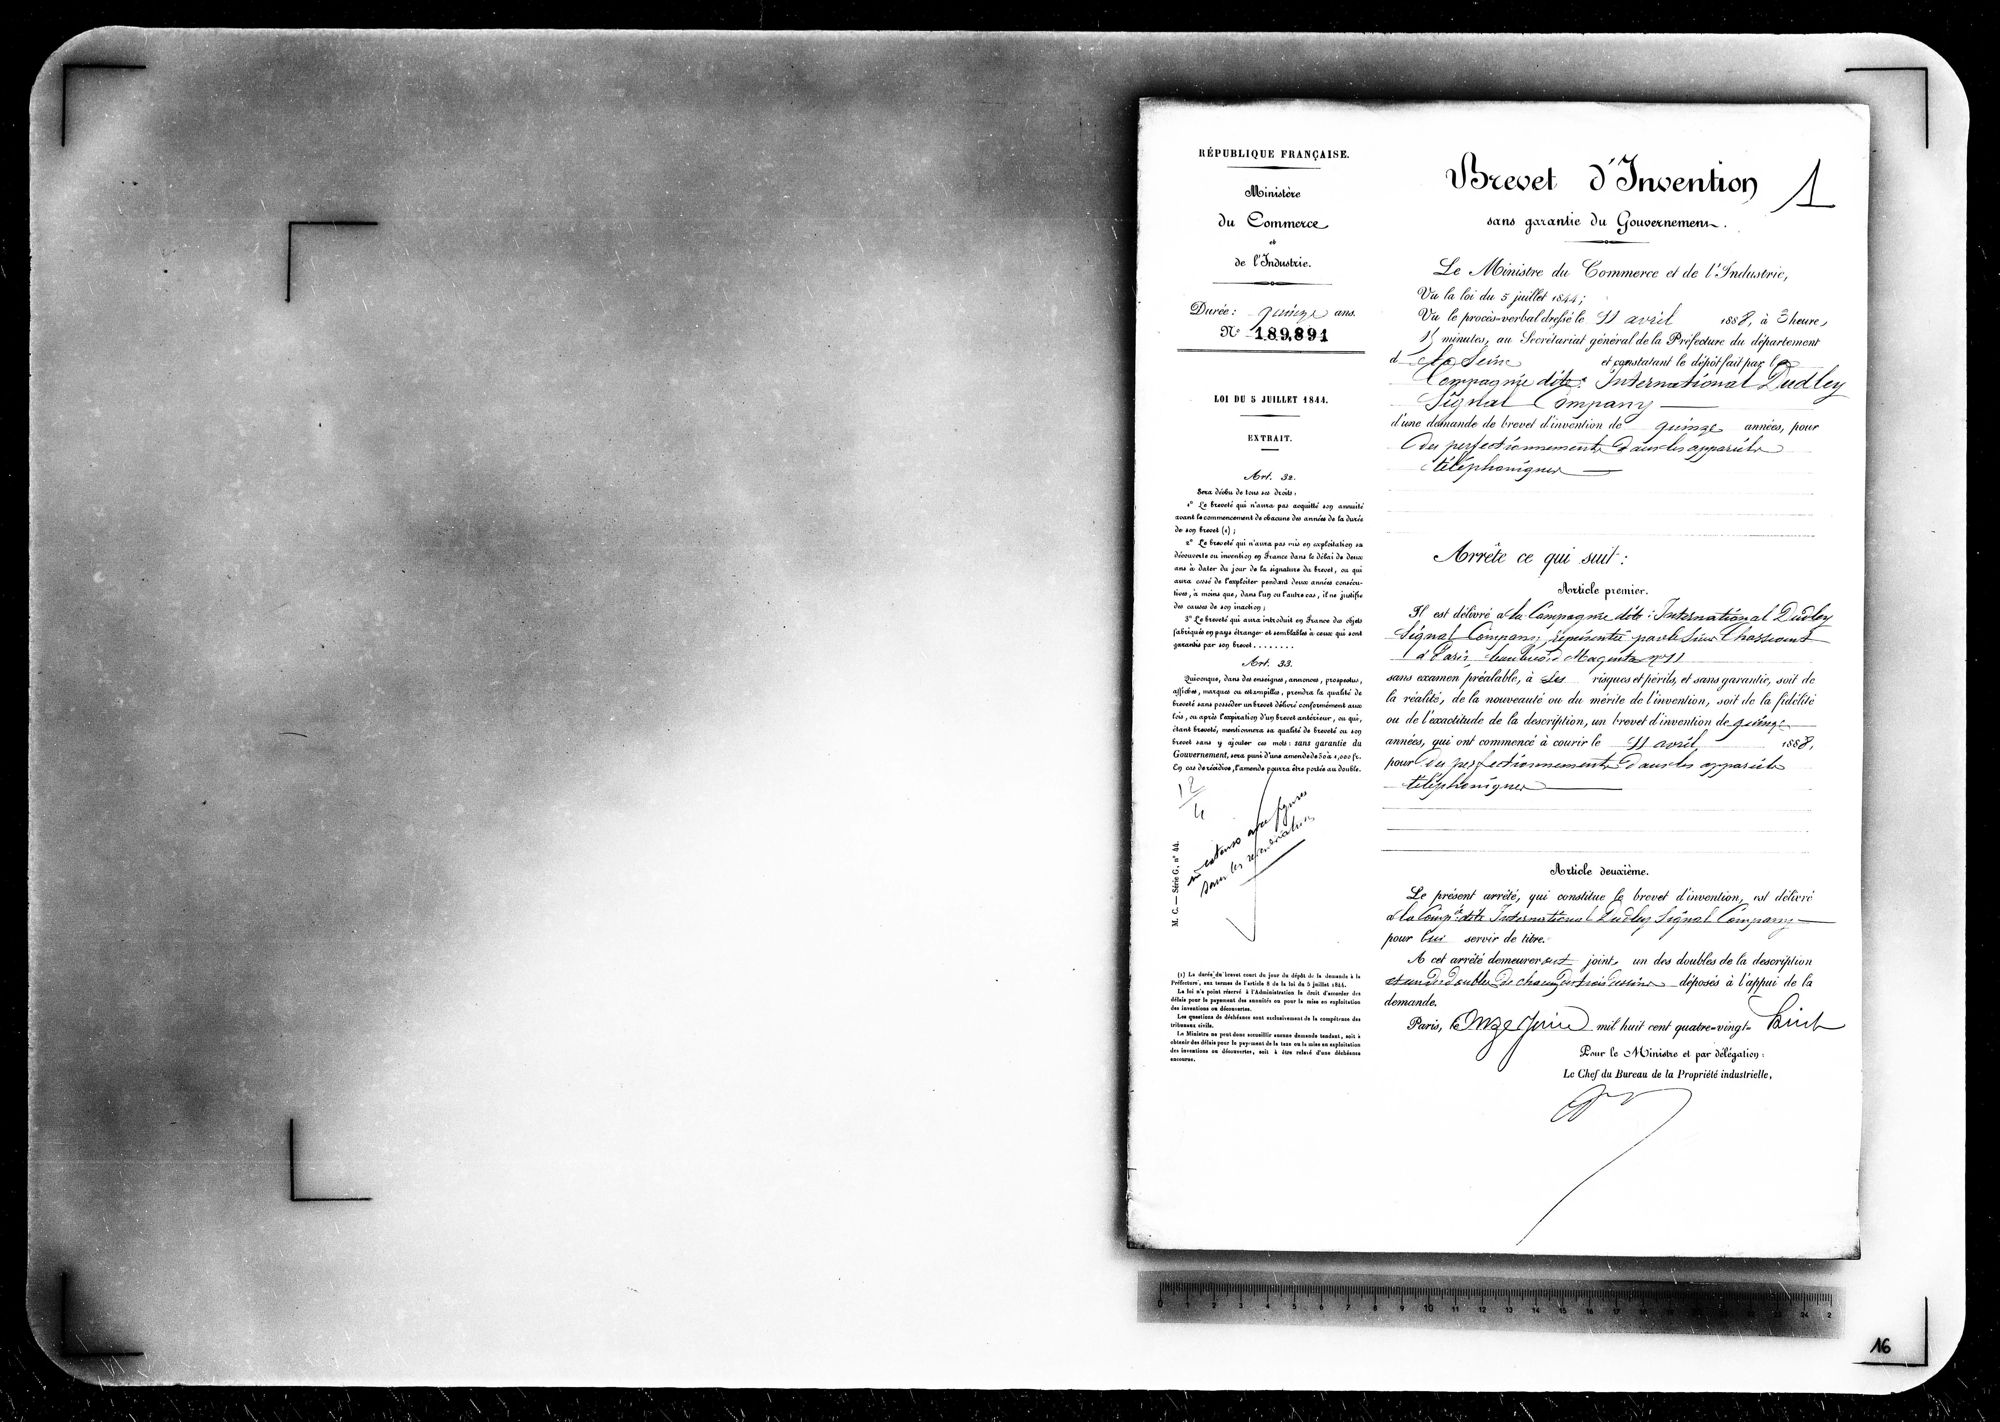 RÉPUBLIQUE FRANÇAISE.
Ministère
du Commerce
et
de l'Industrie.
Durée : quinze ans.
N° 189,891
LOI DU 5 JUILLET 1844.
EXTRAIT.
Art. 32.
Sera déchu de tous ses droits :
1° Le breveté qui n'aura pas acquitté son annuité
avant le commencement de chacune des années de la durée
de son brevet (1) ;
2° Le breveté qui n'aura pas mis en exploitation sa
découverte ou invention en France dans le délai de deux
ans à dater du jour de la signature du brevet, ou qui
aura cessé de l'exploiter pendant deux années consécu-
tives, à moins que, dans l'un ou l'autre cas, il ne justifie
des causes de son inaction ;
3° Le breveté qui aura introduit en France des objets
fabriqués en pays étranger et semblables à ceux qui sont
garantis par son brevet........
Art. 33.
Quiconque, dans des enseignes, annonces, prospectus,
affiches, marques ou estampilles, prendra la qualité de
breveté sans posséder un brevet délivré conformément aux
lois, ou après l'expiration d'un brevet antérieur, ou qui,
étant breveté, mentionnera sa qualité de breveté ou son
brevet sans y ajouter ces mots : sans garantie du
Gouvernement, sera puni d'une amende de 50 à 1,000 fr.
En cas de récidive, l'amende pourra être portée au double.
12
4
in extenso avec figures
sans les revendications
M. C. — Série G. n° 44.
(1) La durée du brevet court du jour du dépôt de la demande à la
Préfecture, aux termes de l'article 8 de la loi du 5 juillet 1844.
La loi n'a point réservé à l'Administration le droit d'accorder des
délais pour le payement des annuités ou pour la mise en exploitation
des inventions ou découvertes.
Les questions de déchéance sont exclusivement de la compétence des
tribunaux civils.
Le Ministre ne peut donc accueillir aucune demande tendant, soit à
obtenir des délais pour le payement de la taxe ou la mise en exploitation
des inventions ou découvertes, soit à être relevé d'une déchéance
encourue.
Brevet d'Invention
1
sans garantie du Gouvernement.
Le Ministre du Commerce et de l'Industrie,
Vu la loi du 5 juillet 1844 ;
Vu le procès-verbal dressé le 11 avril 1888, à 3 heures
15 minutes, au Secrétariat général de la Préfecture du département
d e la Seine et constatant le dépôt fait par la
Compagnie dite : International Dudley
Signal Company
d'une demande de brevet d'invention de quinze années, pour
des perfectionnements dans les appareils
téléphoniques
Arrête ce qui suit :
Article premier.
Il est délivré à la Compagnie dite : International Dudley
Signal Company, représentée par le Sieur
à Paris, boulevard Magenta n° 11
sans examen préalable, à ses risques et périls, et sans garantie, soit de
la réalité, de la nouveauté ou du mérite de l'invention, soit de la fidélité
ou de l'exactitude de la description, un brevet d'invention de quinze
années, qui ont commencé à courir le 11 avril 1888,
pour des perfectionnements dans les appareils
téléphoniques
Article deuxième.
Le présent arrêté, qui constitue le brevet d'invention, est délivré
à la Compie dite International Dudley Signal Company
pour lui servir de titre.
A cet arrêté demeureront joints un des doubles de la description
et un des doubles de chacun des trois dessins déposés à l'appui de la
demande.
Paris, le Onze Juin mil huit cent quatre-vingt- huit
Pour le Ministre et par délégation :
Le Chef du Bureau de la Propriété industrielle,
16